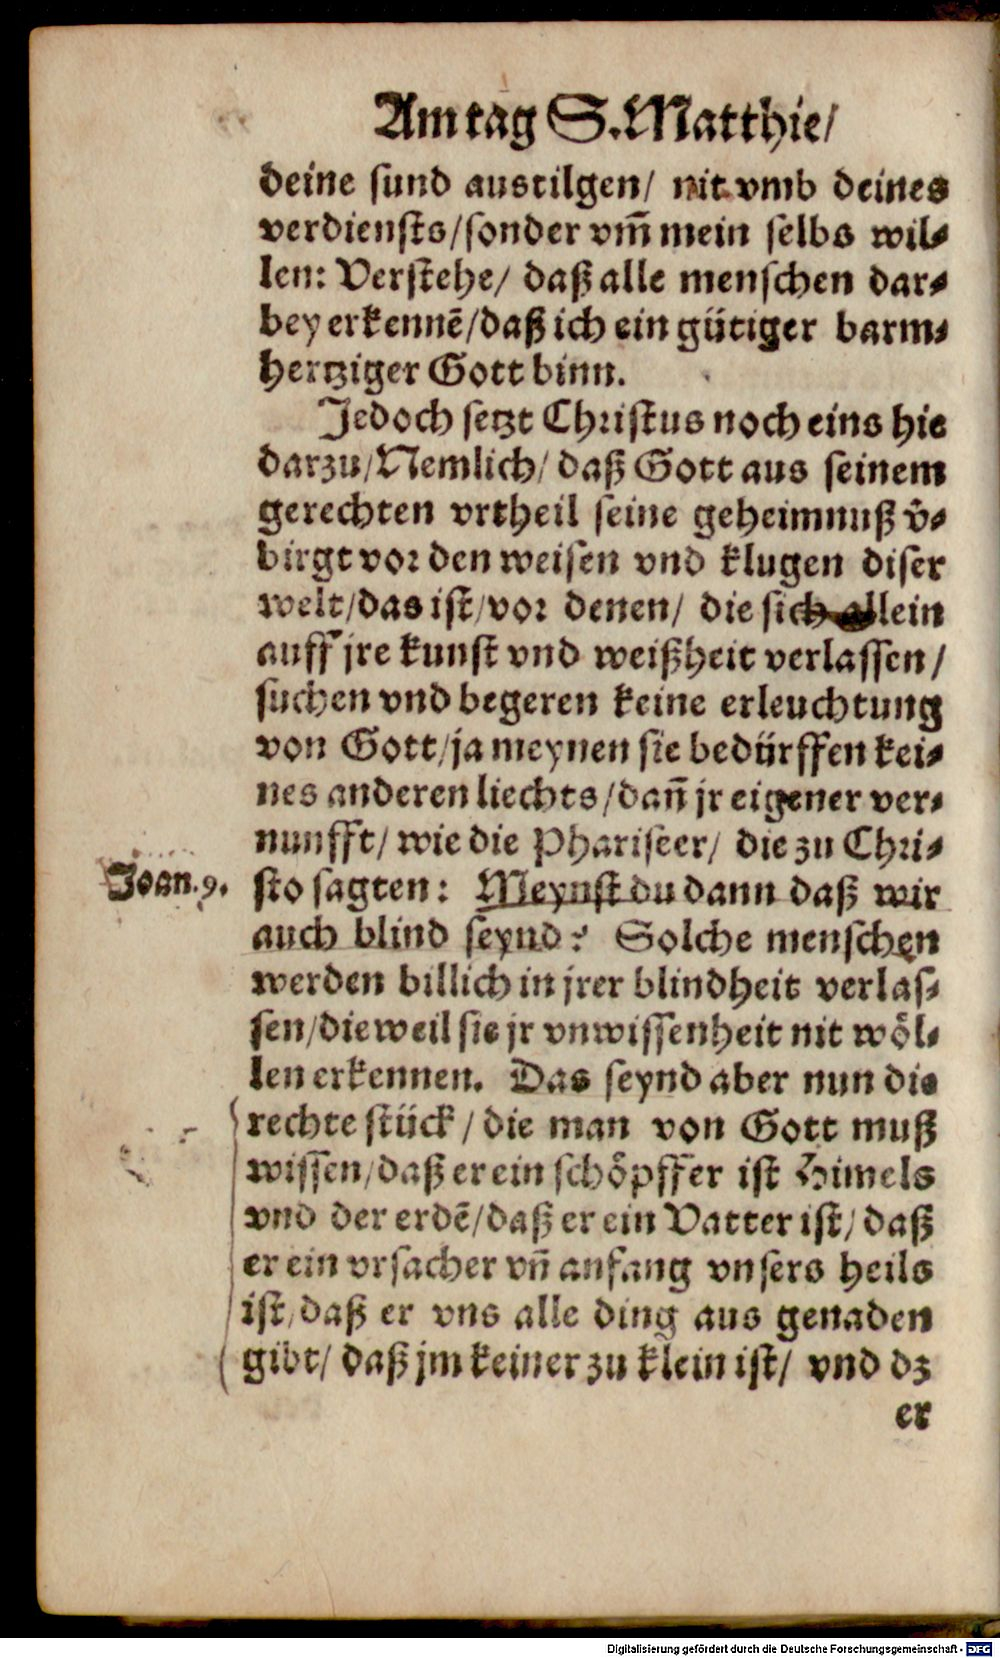 Am tag S. Matthie/
deine sund austilgen/ nit vmb deines
verdiensts/sonder vm̃ mein selbs wil⸗
len: Verstehe/ daß alle menschen dar⸗
bey erkennẽ/daß ich ein gütiger barm⸗
hertziger Gott binn.
Jedoch setzt Christus noch eins hie
darzu/Nemlich/ daß Gott aus seinem
gerechten vrtheil seine geheimnuß v̂⸗
birgt vor den weisen vnd klugen diser
welt/das ist/vor denen/ die sich allein
auff jre kunst vnd weißheit verlassen/
suchen vnd begeren keine erleuchtung
von Gott/ja meynen sie bedürffen kei⸗
nes anderen liechts/dañ jr eigener ver⸗
nunfft/ wie die Phariseer/ die zu Chri⸗
Joan.9.
sto sagten: Meynst du dann daß wir
auch blind seynd? Solche menschen
werden billich in jrer blindheit verlas⸗
sen/dieweil sie jr vnwissenheit nit wöl⸗
len erkennen. Das seynd aber nun die
rechte stück/ die man von Gott muß
wissen/daß er ein schöpffer ist Himels
vnd der erdẽ/daß er ein Vatter ist/ daß
er ein vrsacher vñ anfang vnsers heils
ist/daß er vns alle ding aus genaden
gibt/ daß jm keiner zu klein ist/ vnd dz
er
Digitalisierung gefördert durch die Deutsche Forschungsgemeinschaft - DFG